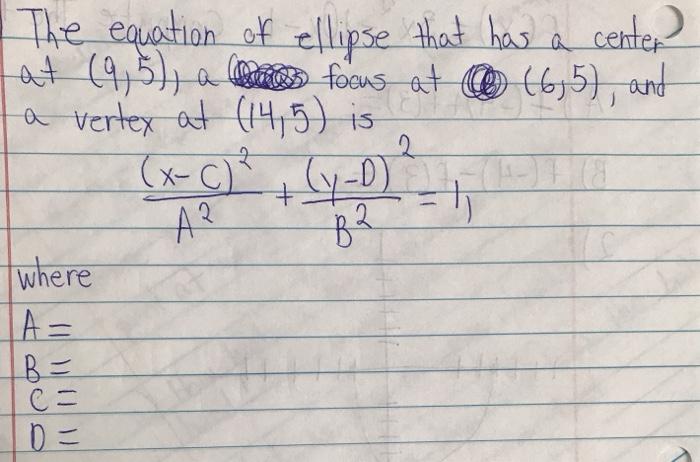 The equation of ellipse that has a center
at (9,5), a focus at (6,5), and
a vertex at (14,5) is
(x-C)²/A² + (y-D)²/B² = 1,
where
A =
B =
C =
D =